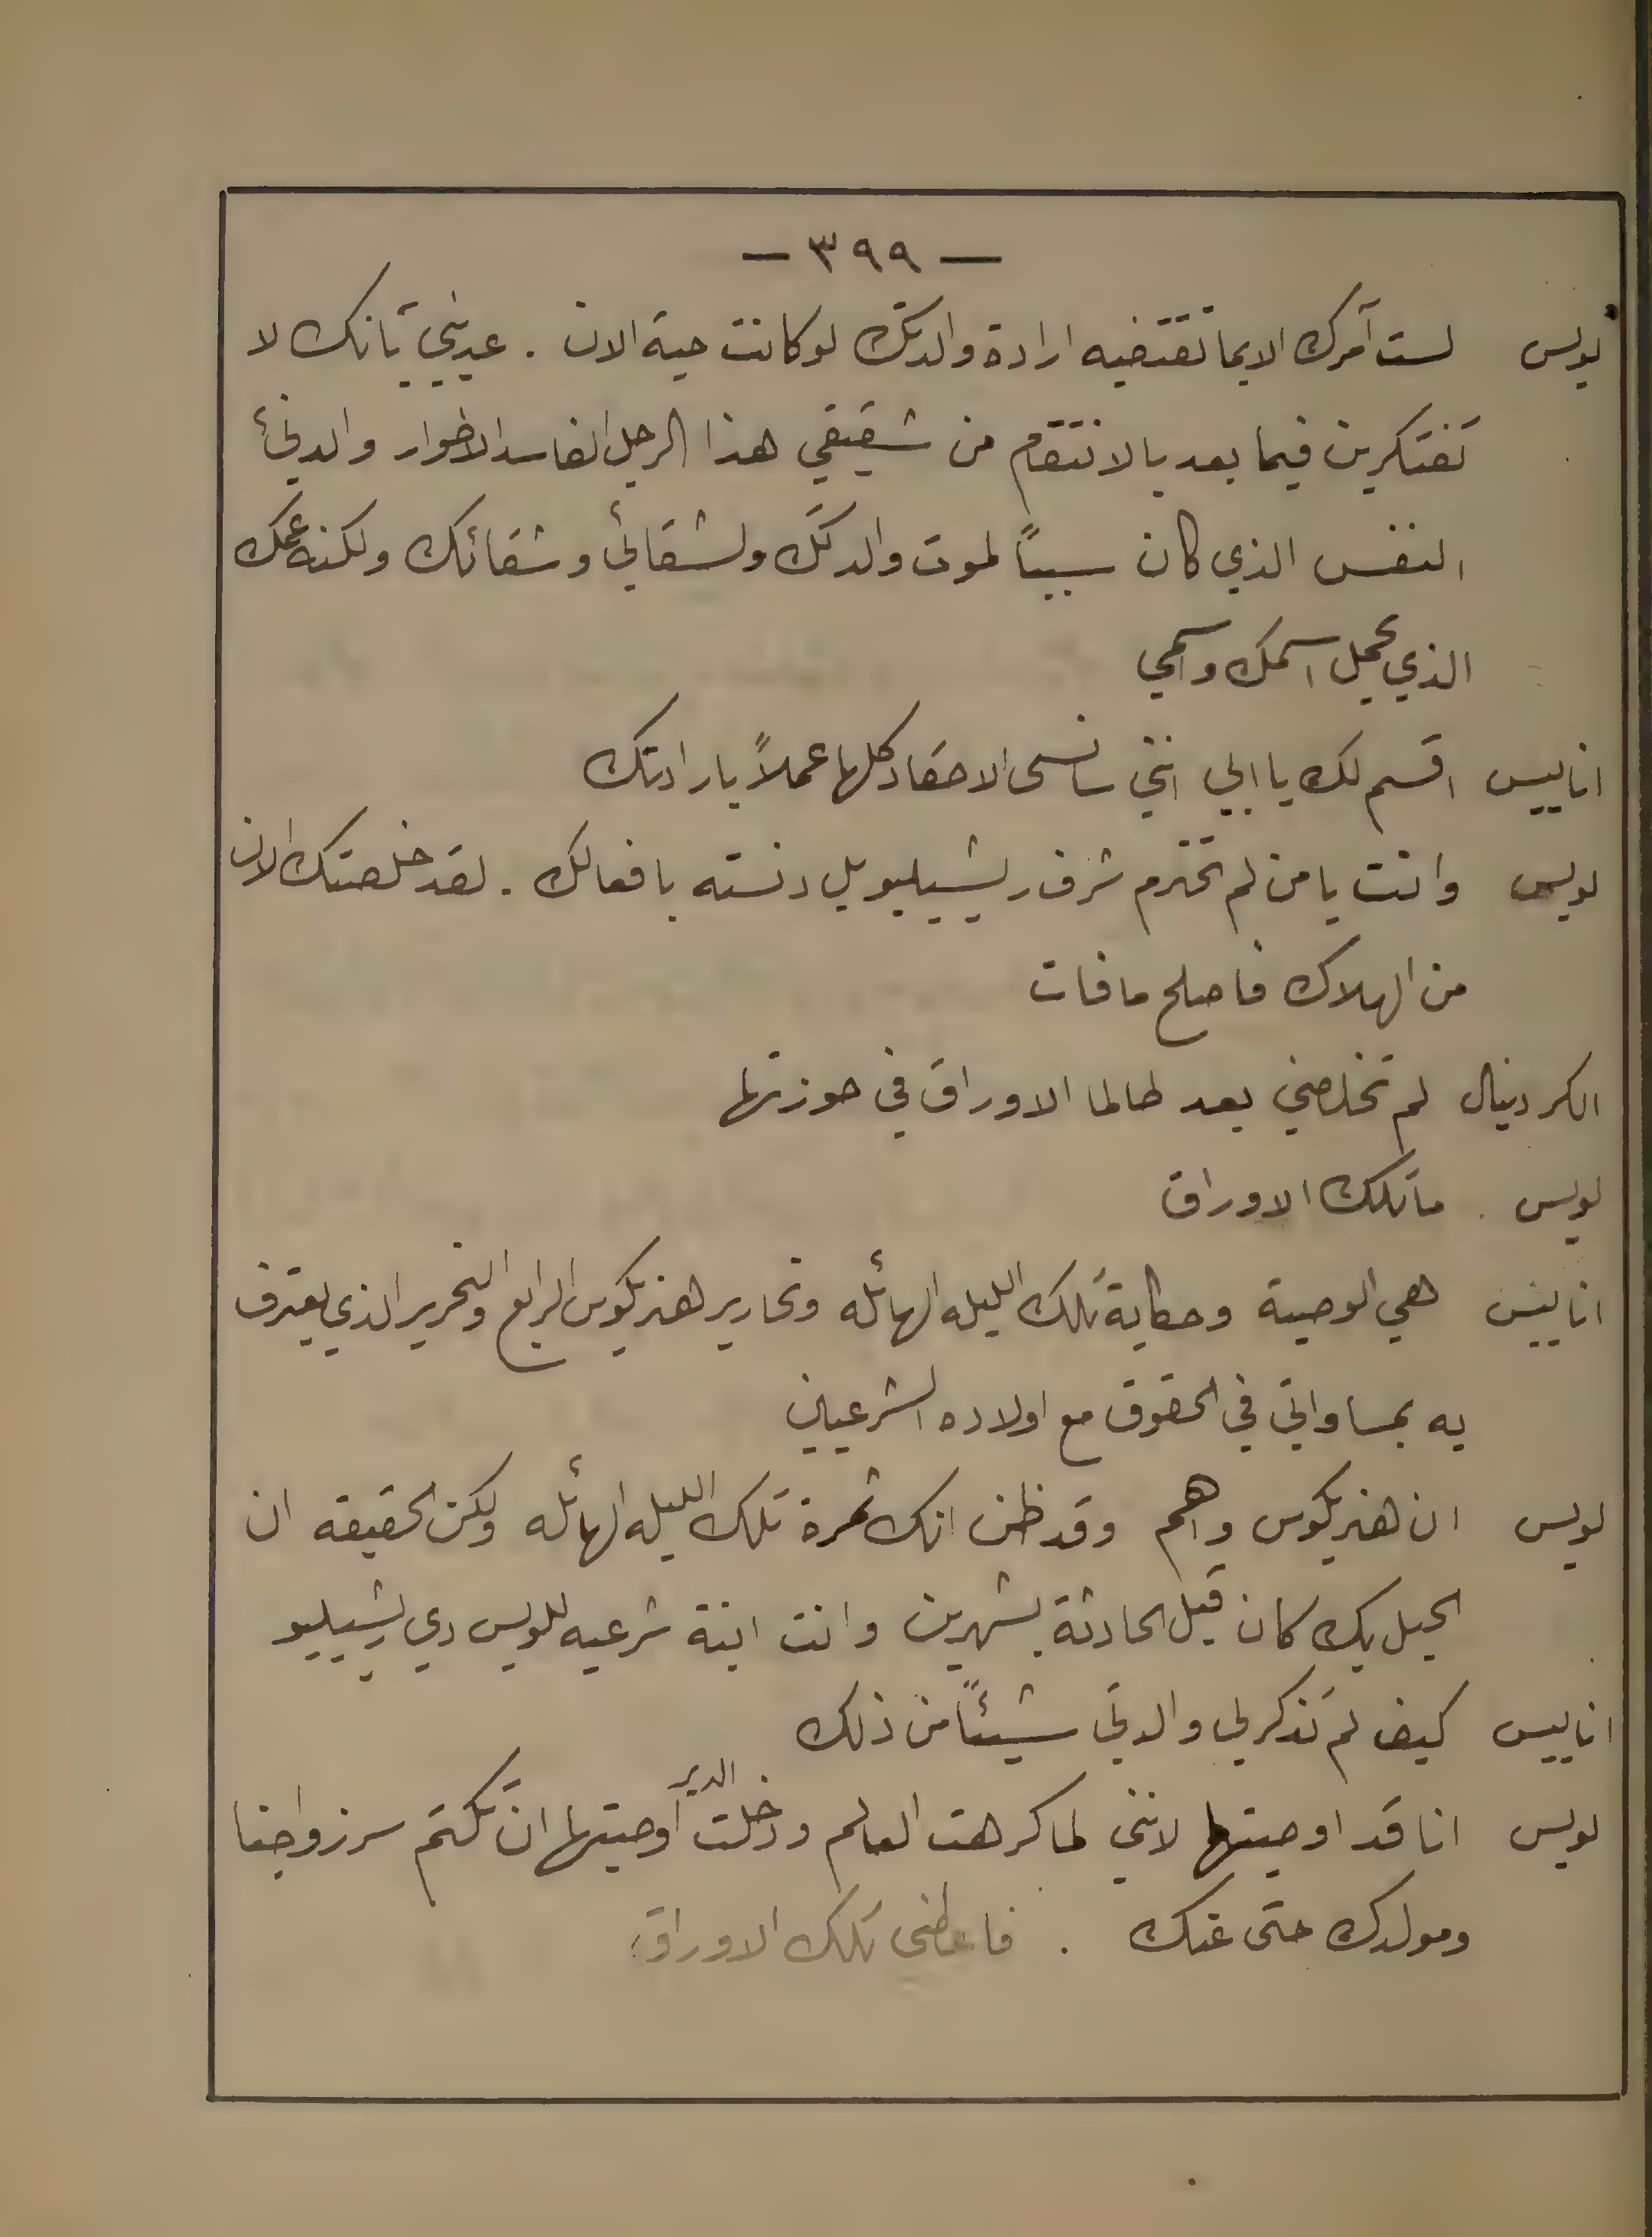 — ٣٩٩ —
لويس لست آمرك الا بما تقتضيه ارادة والدتك لو كانت حية الان . عديني بانك لا
تفتكرين فيما بعد بالانتقام من شقيقي هذا الرجل الفاسد الاطوار والدنئ
النفس الذي كان سبباً لموت والدتك ولشقائي وشقائك ولكنه عمك
الذي يحمل اسمك واسمي
اناييس اقسم لك يا ابي انني سانسى الاحقاد كلها عملاً بارادتك
لويس وانت يا من لم تحترم شرف ريشيليو بل دنسته بافعالك . لقد خلصتك الان
من الهلاك فاصلح ما فات
الكردينال لم تخلصني بعد طالما الاوراق في حوزتها
لويس ما تلك الاوراق
اناييس هي الوصية وحكاية تلك الليله الهائله وتحارير هنريكوس الرابع والتحرير الذي يعترف
به بمساواتي في الحقوق مع اولاده الشرعيين
لويس ان هنريكوس واهم وقد ظن انك ثمرة تلك الليله الهائله ولكن الحقيقه ان
الحبل بك كان قبل الحادثة بشهرين وانت ابنة شرعيه للويس دي ريشيليو
اناييس كيف لم تذكر لي والدتي شيئاً من ذلك
لويس انا قد اوصيتها لانني لما كرهت العالم ودخلت الدير أوصيتها ان تكتم سر زواجنا
ومولدك حتى عنك . فاعطني تلك الاوراق